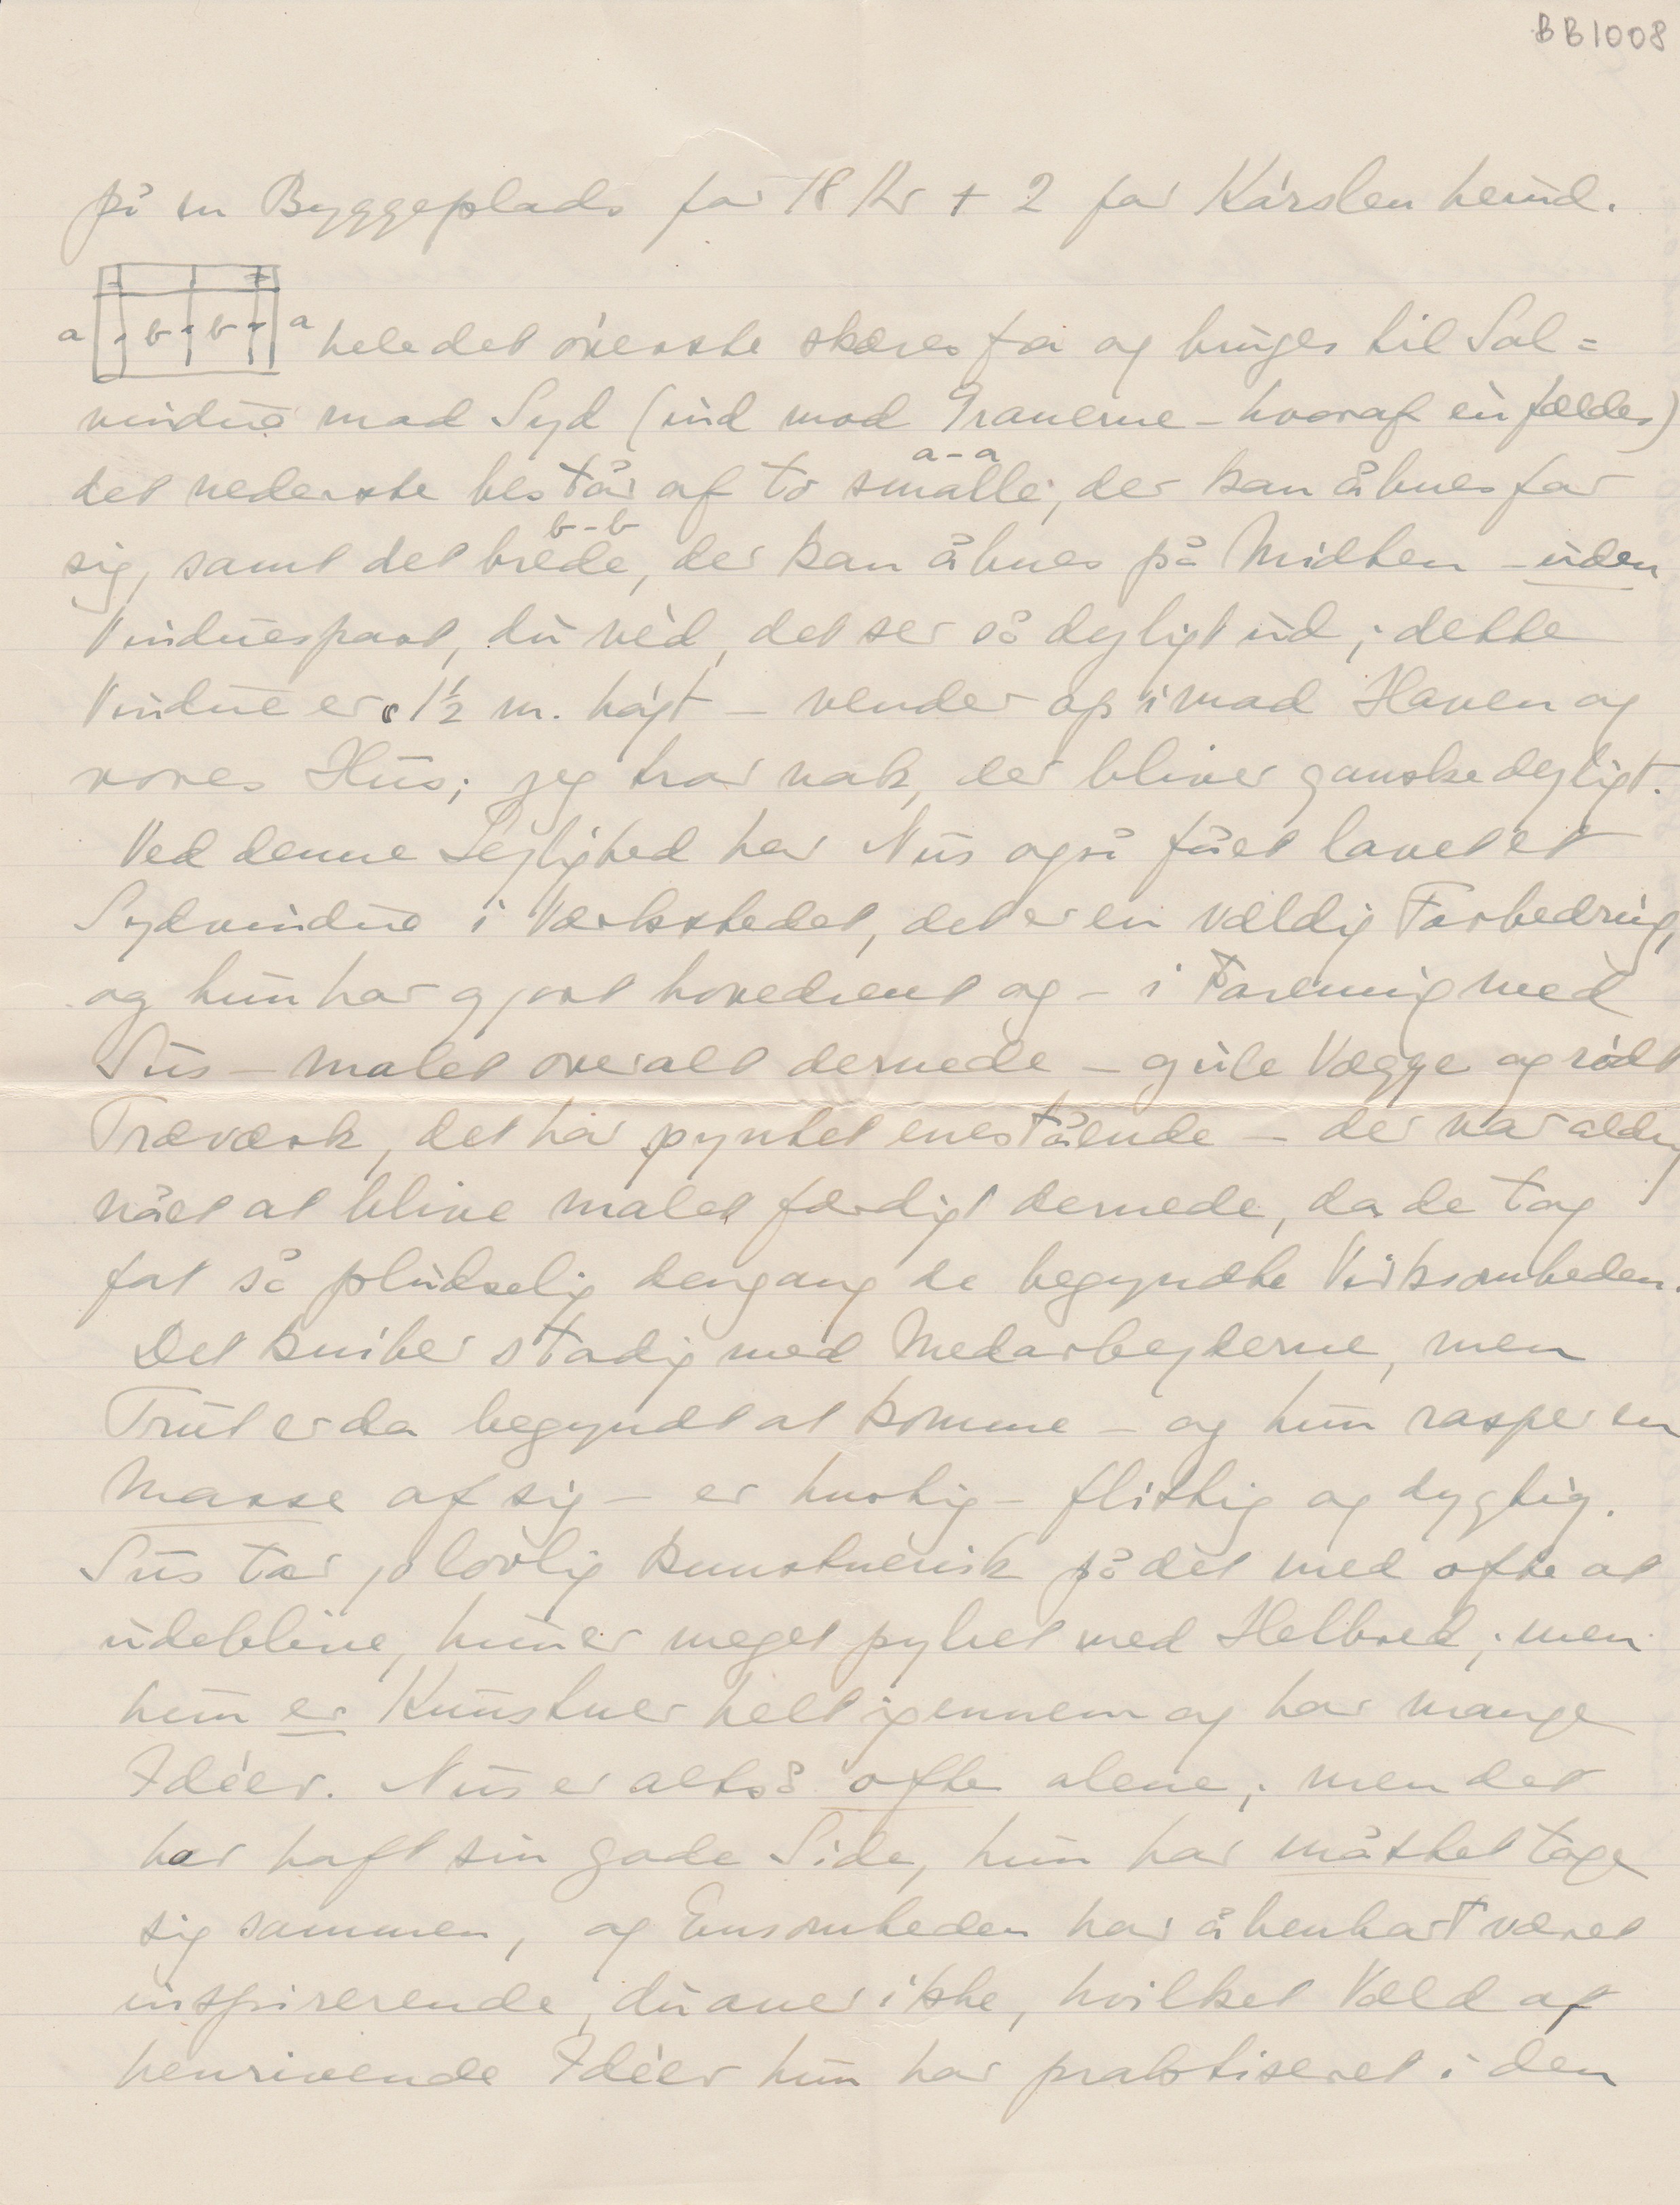 BB1008
på en Byggeplads for 18 Kr + 2 for Kørslen herud.
a b b a hele det øverste skæres fra og bruges til Sol=
vindue mod Syd (ind mod Granerne – hvoraf èn fældes)
a–a
det nederste består af to smalle, der kan åbnes for
b–b
sig, samt det brede, der kan åbnes på Midten – uden
Vinduespost, du véd, det ser så dejligt ud; dette
Vindue er 1½ m. højt – vender op imod Haven og
vores Hus; jeg tror nok, der bliver ganske dejligt.
Ved denne Lejlighed har Nus også fået lavet et
Sydvindue i Værkstedet, det er en vældig Forbedring,
og hun har gjort hovedrent og – i Forening med
Sus – malet overalt dernede – gule Vægge og rødt
Træværk, det har pyntet enestående – der var aldrig
nået at blive malet færdigt dernede, da de tog
fat så pludselig dengang de begyndte Virksomheden.
Det kniber stadig med Medarbejderne, men
Trut er da begyndt at komme – og hun rasper en
Masse af sig – er hurtig – flittig og dygtig.
Sus tar jo lovlig kunstnerisk på det med ofte at
udeblive, hun er meget pylret med Helbred; men
hun er Kunstner helt igennem og har mange
Idéer. Nus er altså ofte alene; men det
har haft sin gode Side, hun har måttet tage
sig sammen, og Ensomheden har åbenbart været
inspirerende, du aner ikke, hvilket Væld af
henrivende Idéer hun har praktiseret i den